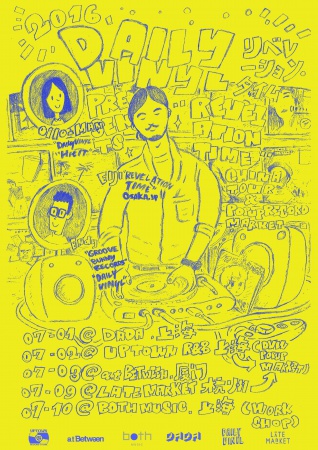 2016
DAILY
VINYL
リベレ
ーション
タイム
PRE
REVEL
ATION
TIME
CHINA
TOUR
&
POP UP RECORD
MARKET
"DAILY VINYL"
EIJI (REVELATION
TIME
OSAKA, JP)
ENDY
"GROOVE
BUNNY
RECORDS"
"DAILY
VINYL"
07-01@DADA.上海
07-02@UPTOWN R&B 上海
(DVW
POP UP
MARKET)
07-08@at BETWEEN.厦门
07-09@LATE MARKET 杭州
07-10@BOTH MUSIC.上海(WORK
SHOP)
UPTOWN
at Between
both
DADA
DAILY
VINYL
LATE
MARKET